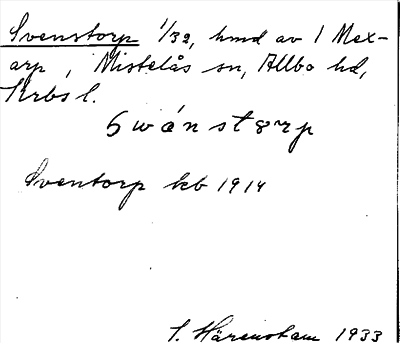 Svenstorp 1/32, hmd av 1 Mex-
arp, Mistelås sn, Allbo hd,
Krbs l.
Swánstarp
Sventorp kb 1914
S. Härenstam 1933